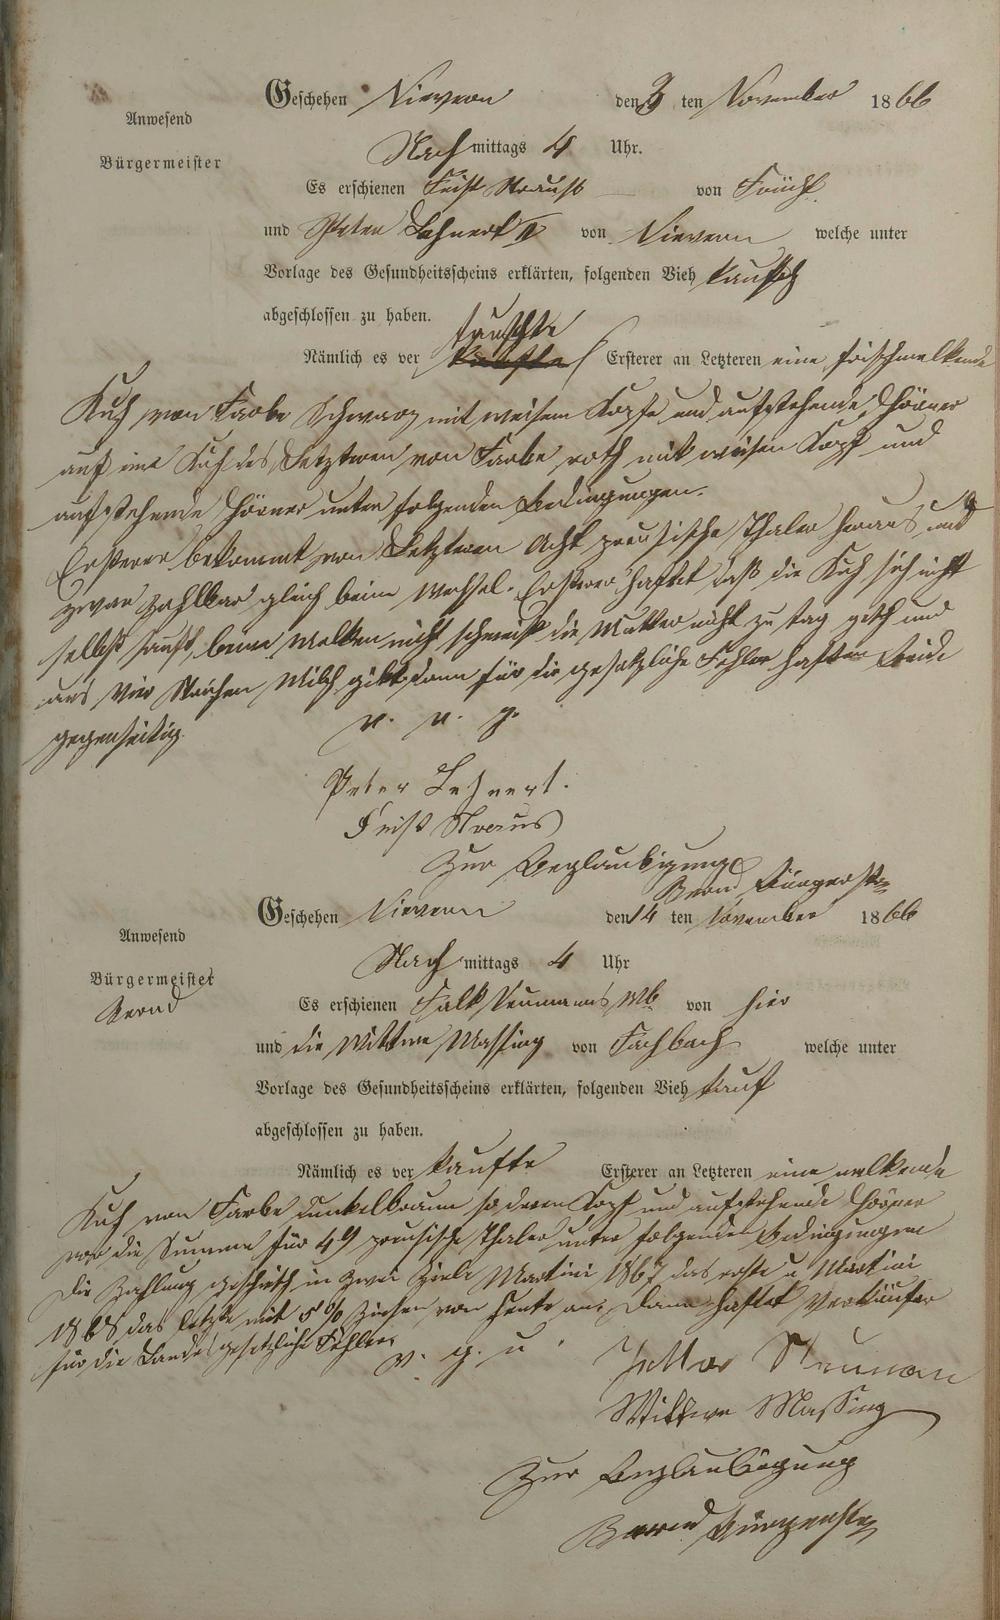 Geschehen Nievern den 3 ten November 1866
Anwesend
Nachmittags 4 Uhr.
Bürgermeister
Es erschienen Feist Strauss von Frücht
und Peter Lehnert II von Nievern welche unter
Vorlage des Gesundheitsscheins erklärten, folgenden Vieh tausch
abgeschlossen zu haben.
tauschte
Nämlich es ver kaufte Ersterer an Letzteren eine frischmelkende
Kuh von Farbe Schwarz mit weisem Kopfe und aufstehende Hörner
auf eine Kuh des Letzteren von Farbe roth mit weisen Kopf und
aufstehende Hörner unter folgenden Bedingungen.
Ersterer bekommt von Letzteren Acht preusische Thaler heraus und
zwar zahlbar gleich beim Wechsel. Ersterer haftet daß die Kuh sich nicht
selbst sauft, beim Melken nicht schmeist die Mutter nicht zu tag geth und
aus Vier Strichen Milch gibt, dann für die gesetzliche Fehler haften Beide
gegenseitig.
v. u. g.
Peter Lehnert.
Feist Straus
Zur Beglaubigung
Bernd Bürgerstr
Geschehen Nievern den 14 ten November 1866
Anwesend
Nachmittags 4 Uhr
Bürgermeister
Bernd
Es erschienen Falk Neumanns Wb von hier
und die Wittwe Massing von Fachbach welche unter
Vorlage des Gesundheitsscheins erklärten, folgenden Vieh kauf
abgeschlossen zu haben.
Nämlich es ver kaufte Ersterer an Letzteren eine melkende
Kuh von Farbe dunkelbraun so deren Kopf und aufstehende Hörner
vor die Summe für 49 preusische Thaler unter folgenden Bedingungen
Die Zahlung geschieth in zwei Ziele Martini 1867 das erste u Martini
1868 das letzte mit 5% Ziehen von heute an, dann haftet Verkäufer
für die Landesgesetzliche Fehler.
v. g. u
Neuman
Wittwe Massing
Zur Beglaubigung
Bernd Bürgerstr